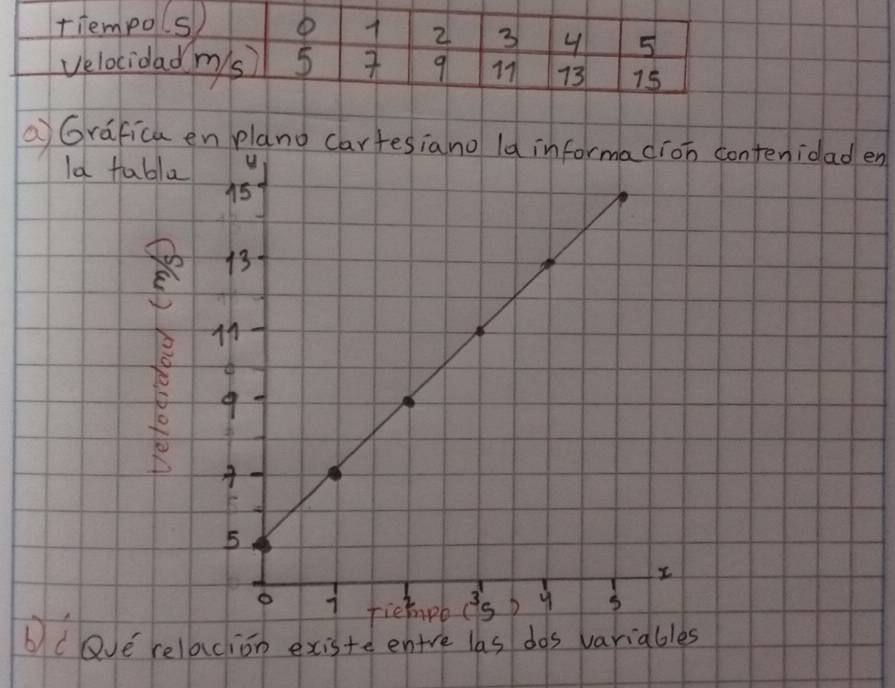 Tiempo(s) 0 1 2 3 4 5
Velocidad(m/s) 5 7 9 11 13 15
a) Gráfica en plano cartesiano la información contenidad en
la tabla
y
15
13
11
9
7
5
Velocidad (m/s)
x
0 1 2 3 4 5
Tiempo (s)
b) ¿Qué relación existe entre las dos variables